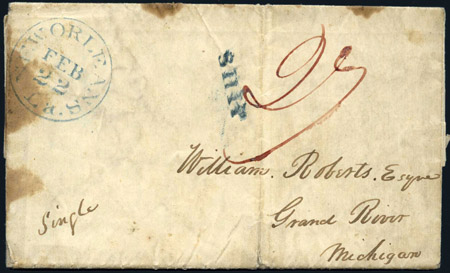 NEW ORLEANS
FEB
22
La.
25
William Roberts Esqre
Single
Grand River
Michigan